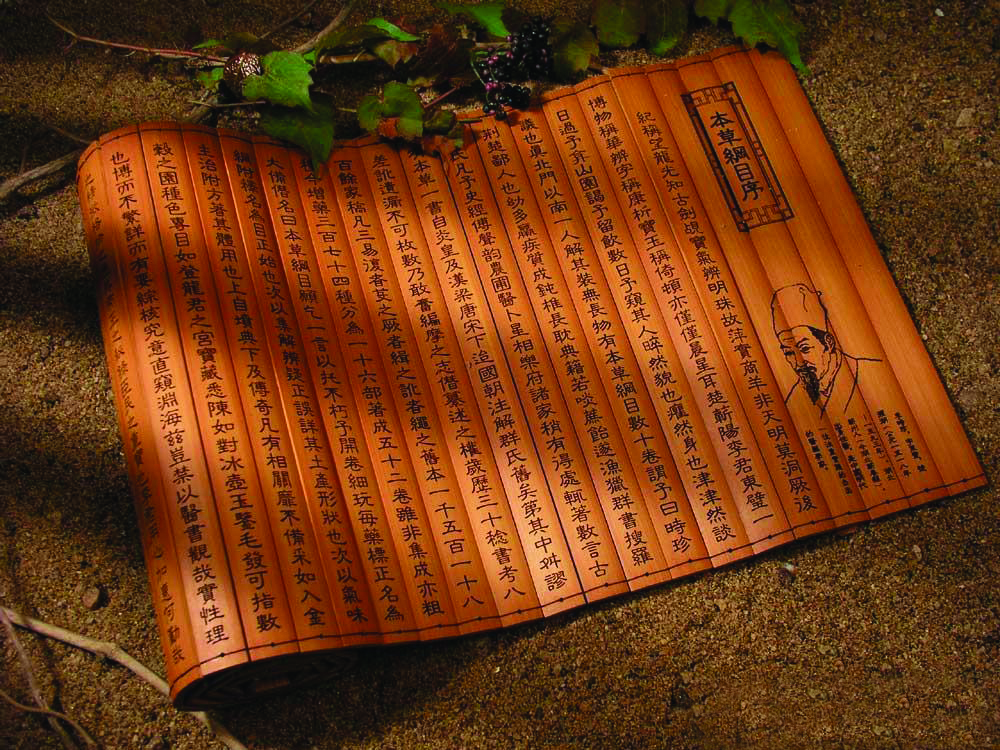 本草綱目序
紀稱望龍光知古劍覘寶氣辨明珠故萍實商羊非天明莫洞厥後
博物稱華辨字稱康析寶玉稱倚頓亦僅僅晨星耳楚蘄陽李君東璧一
日過予弇山園謁予留飲數日予窺其人睟然貌也癯然身也津津然談
議也眞北門以南一人解其裝無長物有本草綱目數十卷謂予曰時珍
荊楚鄙人也幼多羸疾質成鈍椎長耽典籍若啖蔗飴遂漁獵群書搜羅
氏凡子史經傳聲韵農圃醫卜星相樂府諸家稍有得處輒著數言古
本草一書自炎皇及漢梁唐宋下治國朝注解群氏舊矣第其中舛謬
差訛遺漏不可枚數乃敢奮編摩之志僭纂述之權歲歷三十稔書考八
百餘家稿凡三易復者芟之厥者緝之訛者繩之舊本一千五百一十八
今增藥三百七十四種分為一十六部著成五十二卷雖非集成亦粗
大備僭名曰本草綱目願乞一言以托不朽予開卷細玩每藥標正名為
綱附釋名為目正始也次以集解辨疑正誤詳其土產形狀也次以氣味
主治附方著其體用也上自墳典下及傳奇凡有相關靡不備采如入金
穀之園種色奪目如登龍君之宮寶藏悉陳如對冰壺玉鑒毛發可指數
也博而不繁詳而有要綜核究竟直窺淵海茲豈禁以醫書觀哉實性理